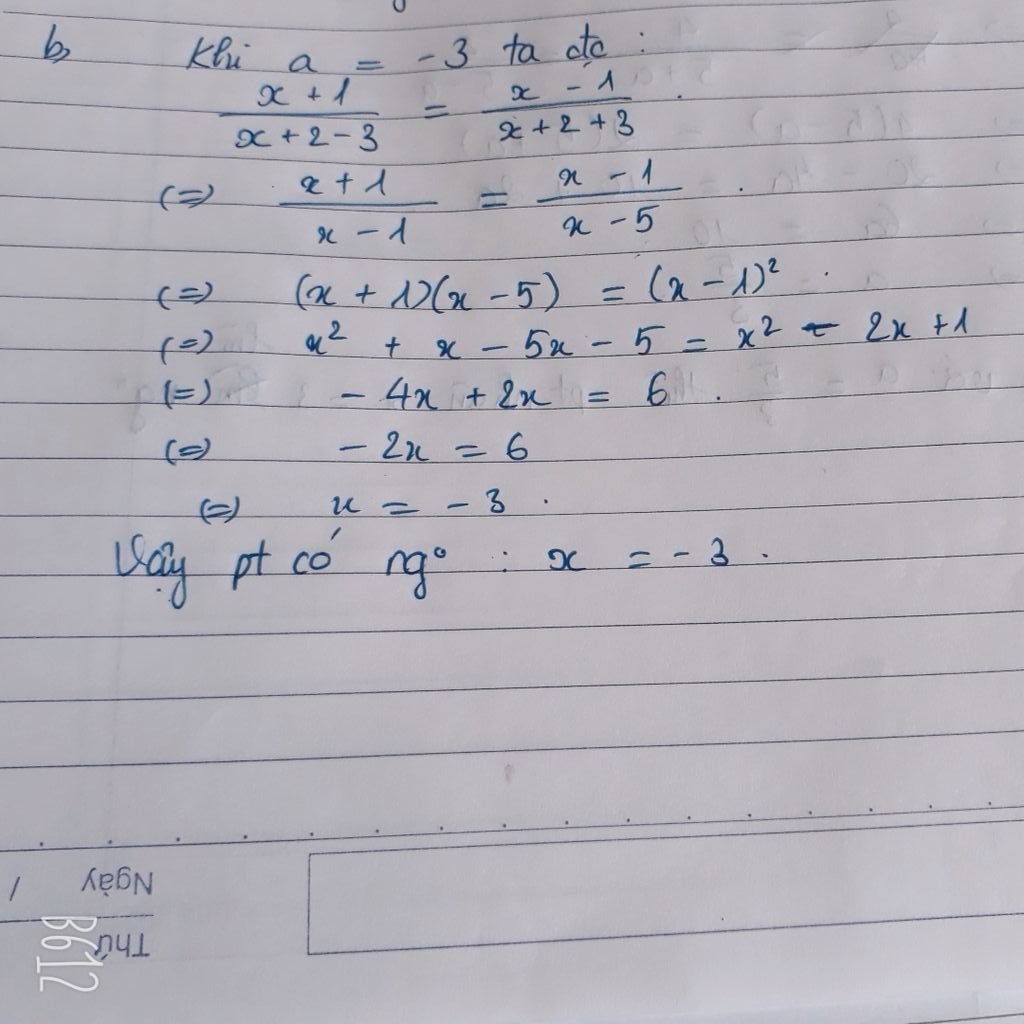 b, Khi a = -3 ta đc :
x + 1 / x + 2 - 3 = x - 1 / x + 2 + 3 .
(=) x + 1 / x - 1 = x - 1 / x - 5 .
(=) (x + 1)(x - 5) = (x - 1)² .
(=) x² + x - 5x - 5 = x² - 2x + 1
(=) - 4x + 2x = 6 .
(=) - 2x = 6
(=) x = - 3 .
Vậy pt có ngº : x = - 3 .
Ngày /
Thứ
B612